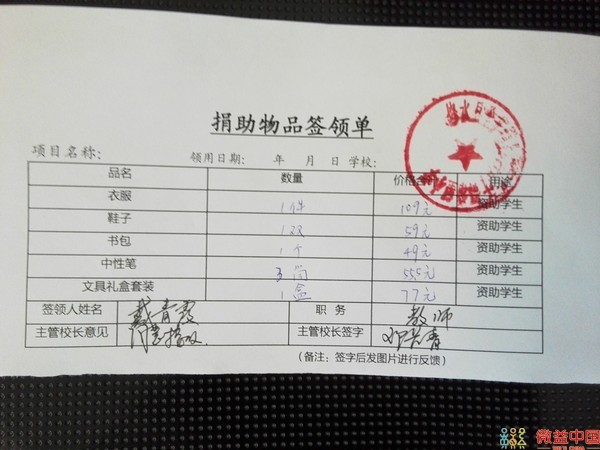 捐助物品签领单
项目名称： 领用日期： 年 月 日 学校：
品名 数量 价格合 用
衣服 1件 109元 资助学生
鞋子 1双 59元 资助学生
书包 1个 49元 资助学生
中性笔 3 555元 资助学生
文具礼盒套装 1盒 77元 资助学生
签领人姓名 戴青霞 职务 教师
主管校长意见 同意 主管校长签字 长青
（备注：签字后发图片进行反馈）
微益中国